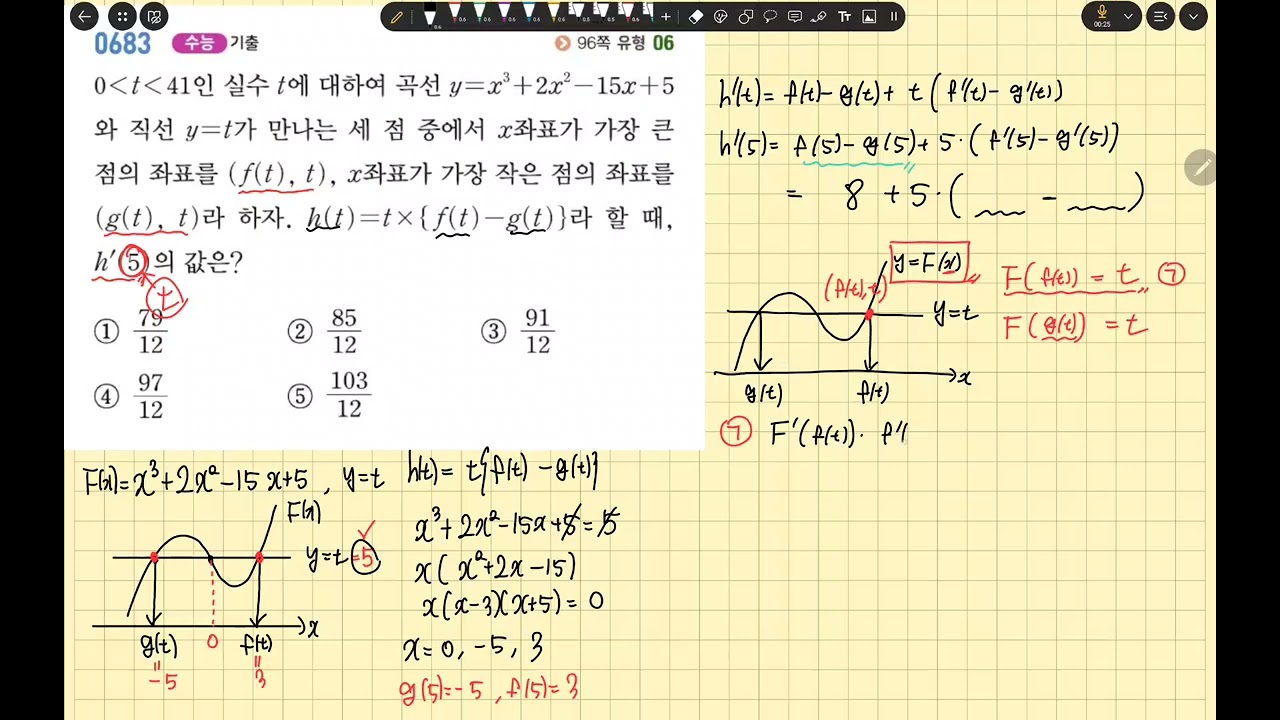 0683 수능 기출 96쪽 유형 06
0<t<41인 실수 t에 대하여 곡선 y=x³+2x²−15x+5
와 직선 y=t가 만나는 세 점 중에서 x좌표가 가장 큰
점의 좌표를 (f(t), t), x좌표가 가장 작은 점의 좌표를
(g(t), t)라 하자. h(t)=t×{f(t)−g(t)}라 할 때,
h′(5)의 값은?
t
① 79/12 ② 85/12 ③ 91/12
④ 97/12 ⑤ 103/12
F(x)=x³+2x²-15x+5, y=t
F(x)
y=t=5
x
g(t) 0 f(t)
=
-5
=
3
h(t)= t{f(t)-g(t)}
x³+2x²-15x+5=5
x(x²+2x-15)
x(x-3)(x+5)=0
x=0, -5, 3
g(5)=-5, f(5)=3
h′(t)= f(t)-g(t)+ t(f′(t)-g′(t))
h′(5)= f(5)-g(5)+5·(f′(5)-g′(5))
= 8 +5·( - )
y=F(x)
(f(t), t)
y=t
x
g(t) f(t)
F(f(t))=t ㉠
F(g(t))=t
㉠ F′(f(t))· f′(
00:25
0.6
0.6
0.6
0.6
0.5
0.5
0.6
0.6
Tt